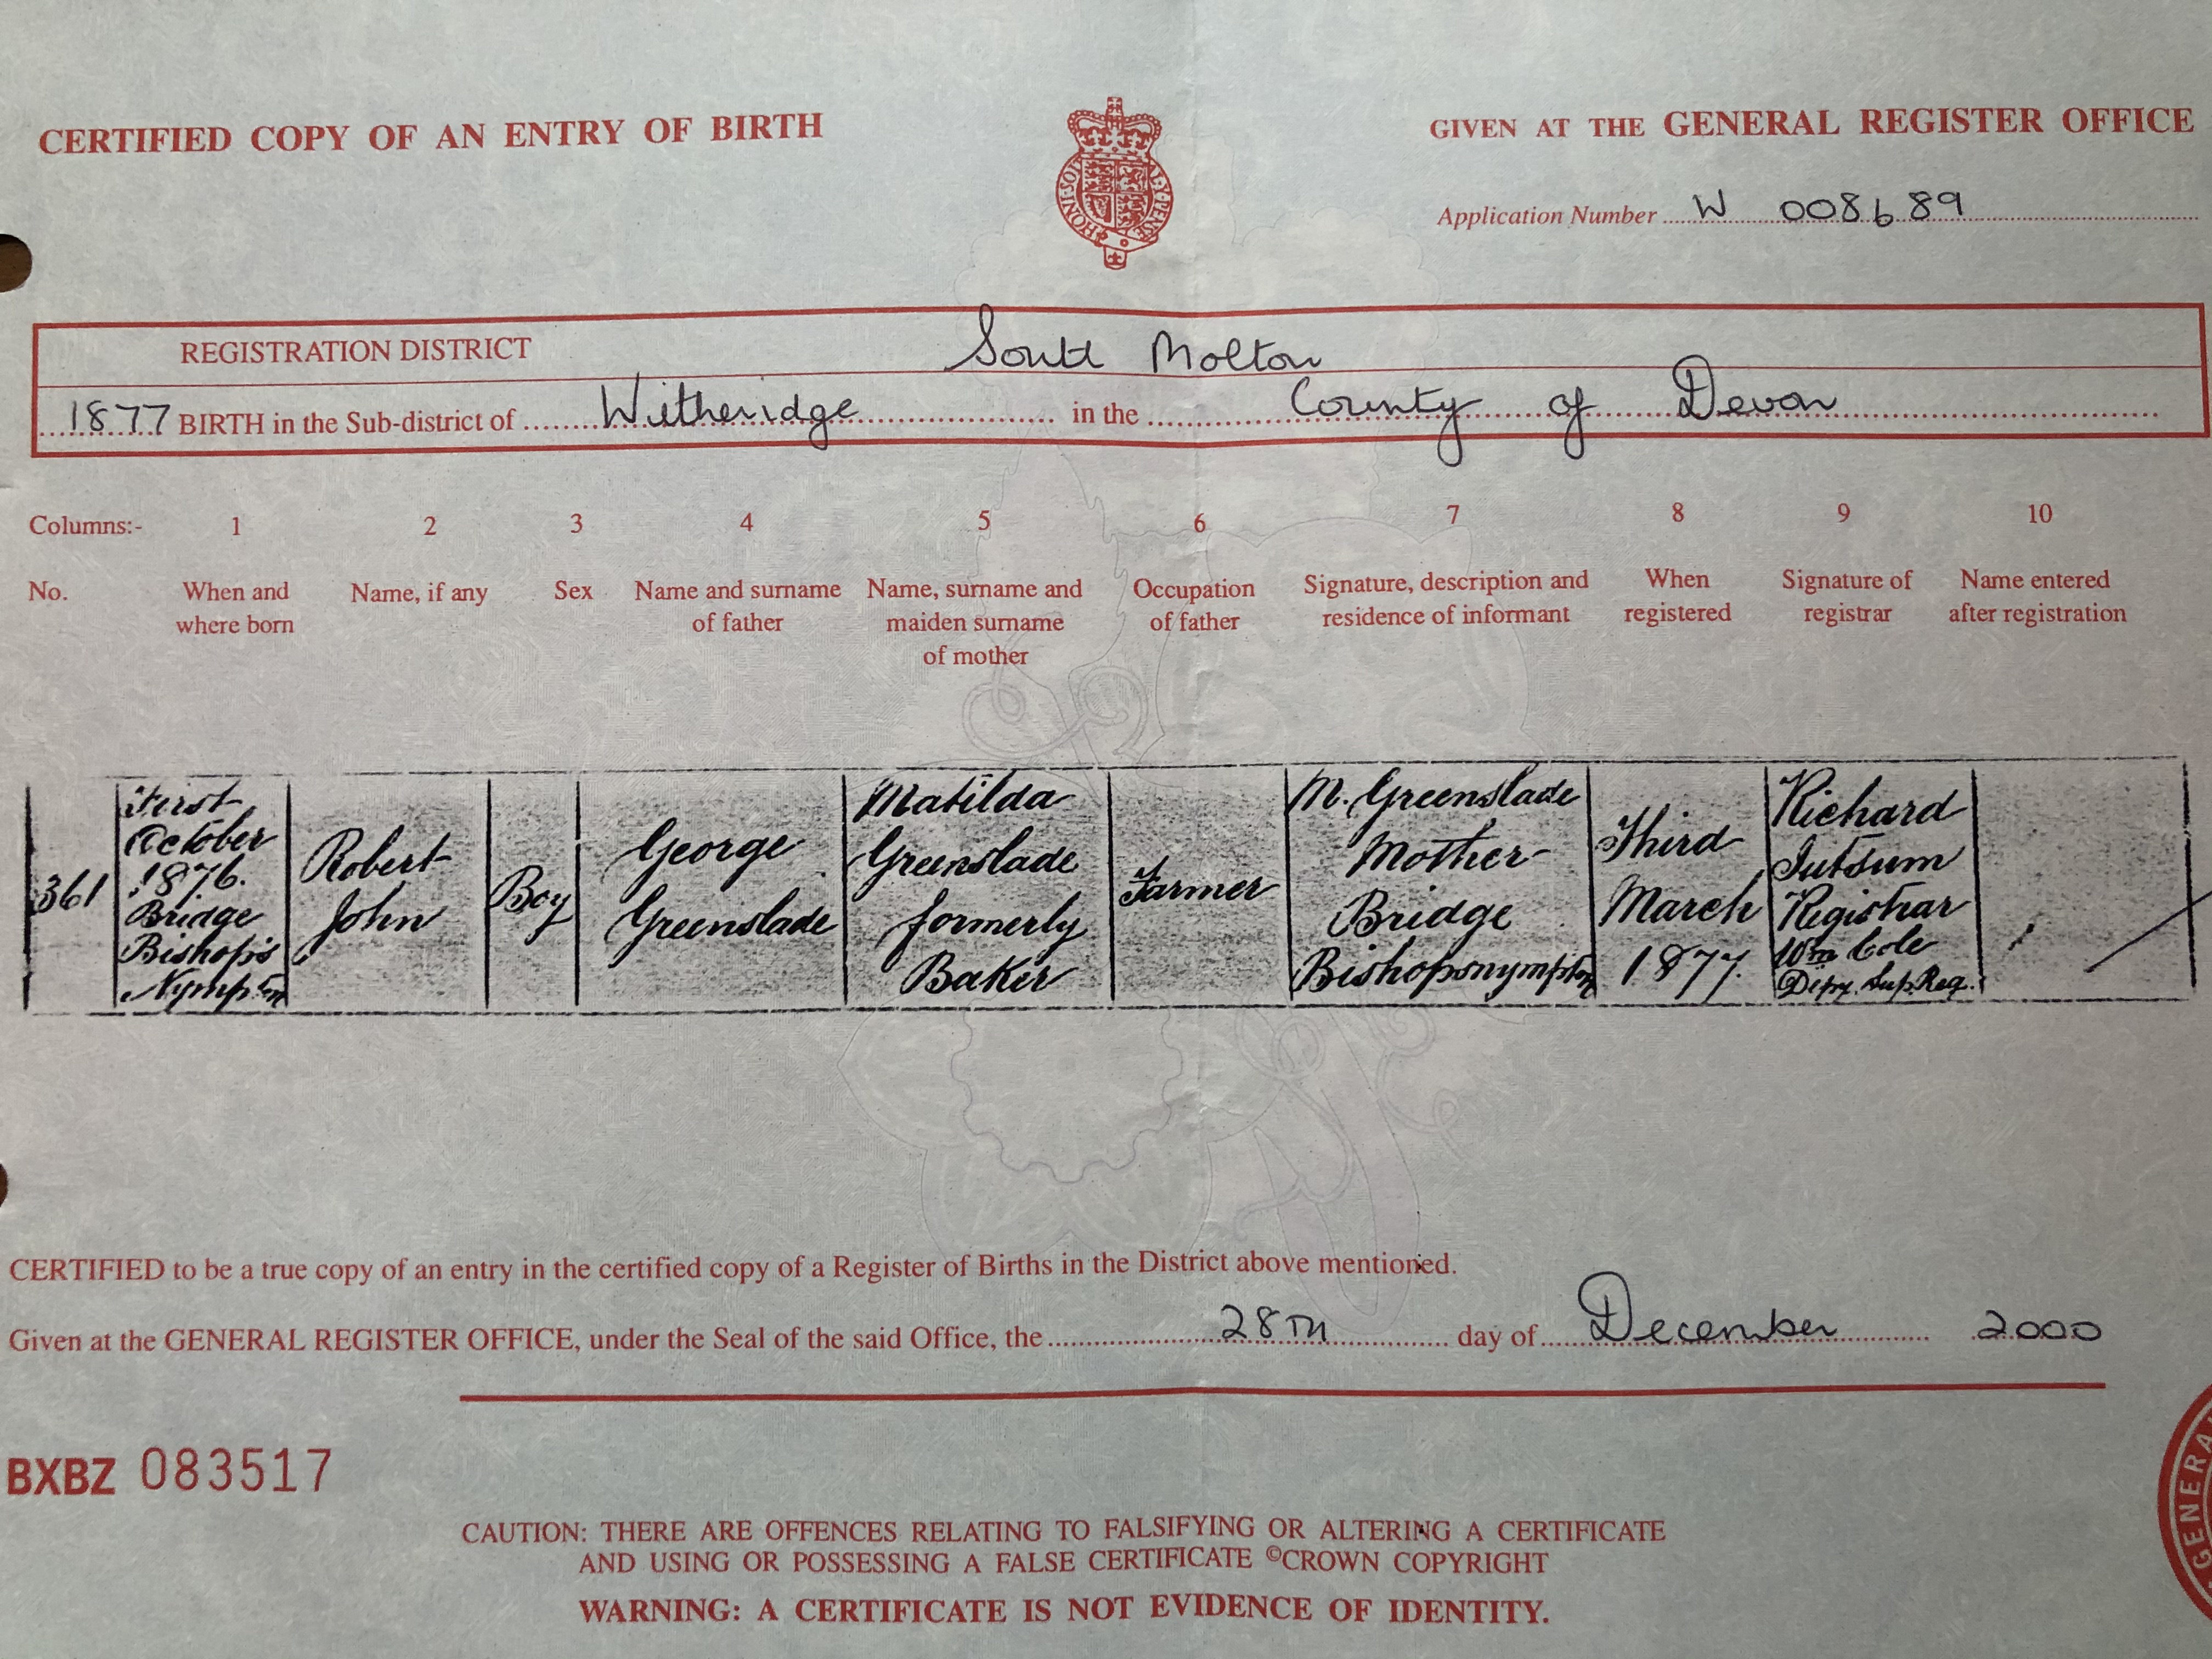 CERTIFIED COPY OF AN ENTRY OF BIRTH
GIVEN AT THE GENERAL REGISTER OFFICE
HONI·SOI AL·Y·PENSE
Application Number W 008689
REGISTRATION DISTRICT South Molton
1877 BIRTH in the Sub-district of Witheridge in the County of Devon
Columns:- 1 2 3 4 5 6 7 8 9 10
No.
When and
where born
Name, if any
Sex
Name and surname
of father
Name, surname and
maiden surname
of mother
Occupation
of father
Signature, description and
residence of informant
When
registered
Signature of
registrar
Name entered
after registration
361
First
October
1876.
Bridge
Bishop's
Nympton
Robert
John
Boy
George
Greenslade
Matilda
Greenslade
formerly
Baker
Farmer
M. Greenslade
Mother
Bridge
Bishopsnympton
Third
March
1877.
Richard
Jutsum
Registrar
Wm Cole
Depy. Sup. Reg.
CERTIFIED to be a true copy of an entry in the certified copy of a Register of Births in the District above mentioned.
Given at the GENERAL REGISTER OFFICE, under the Seal of the said Office, the 28TH day of December 2000
BXBZ 083517
GENERA
CAUTION: THERE ARE OFFENCES RELATING TO FALSIFYING OR ALTERING A CERTIFICATE
AND USING OR POSSESSING A FALSE CERTIFICATE ©CROWN COPYRIGHT
WARNING: A CERTIFICATE IS NOT EVIDENCE OF IDENTITY.